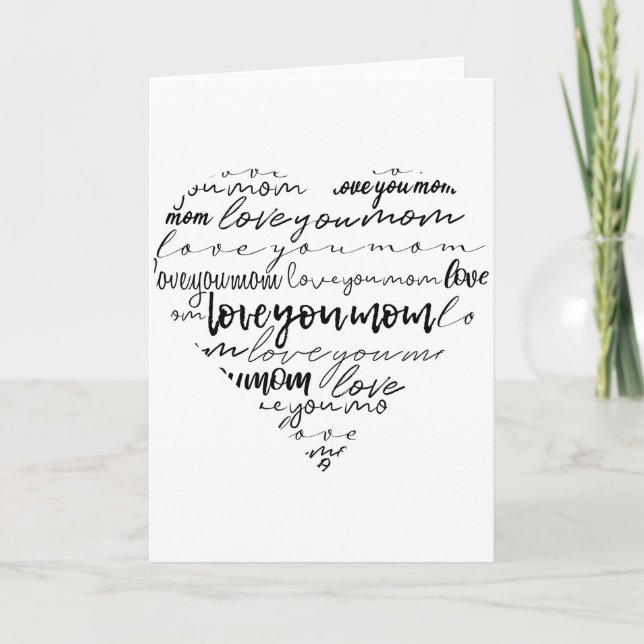 ove
you mom love you mom
mom love you mom
love you mom
love you mom love you mom love
om love you mom lo
om love you mo
you mom love
ve you mo
love